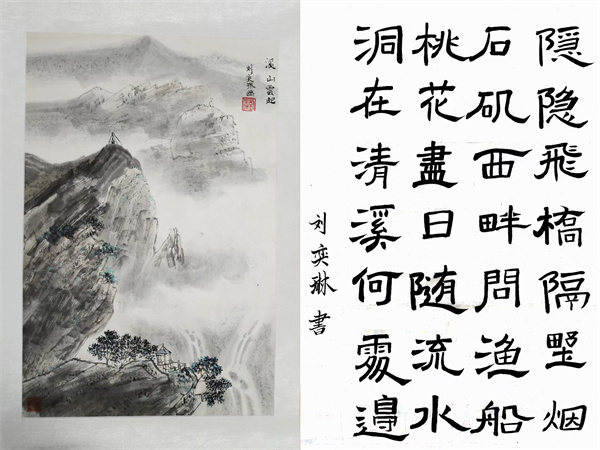 溪山雲起
刘奕琳画
隱隐飛橋隔墅烟
石矶西畔問渔船
桃花盡日随流水
洞在清溪何處邊
刘奕琳書